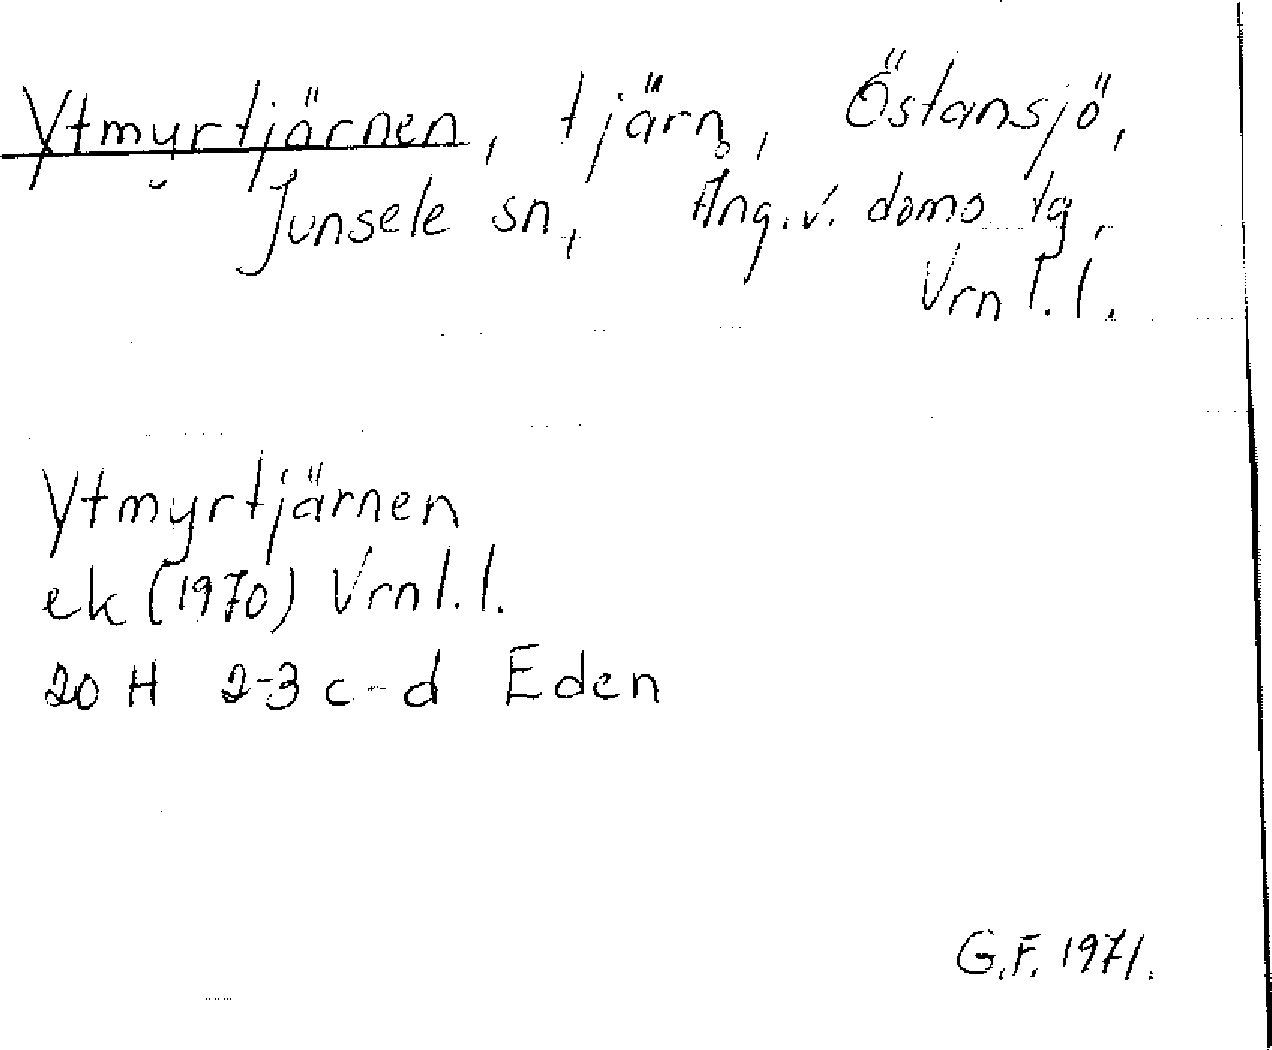 Ytmyrtjärnen, tjärn, Östansjö,
Junsele sn, Ång. v. doms tg,
Vrn l. l.
Ytmyrtjärnen
ek (1970) Vrn l. l.
20 H 2-3 c-d Eden
G.F. 1971.